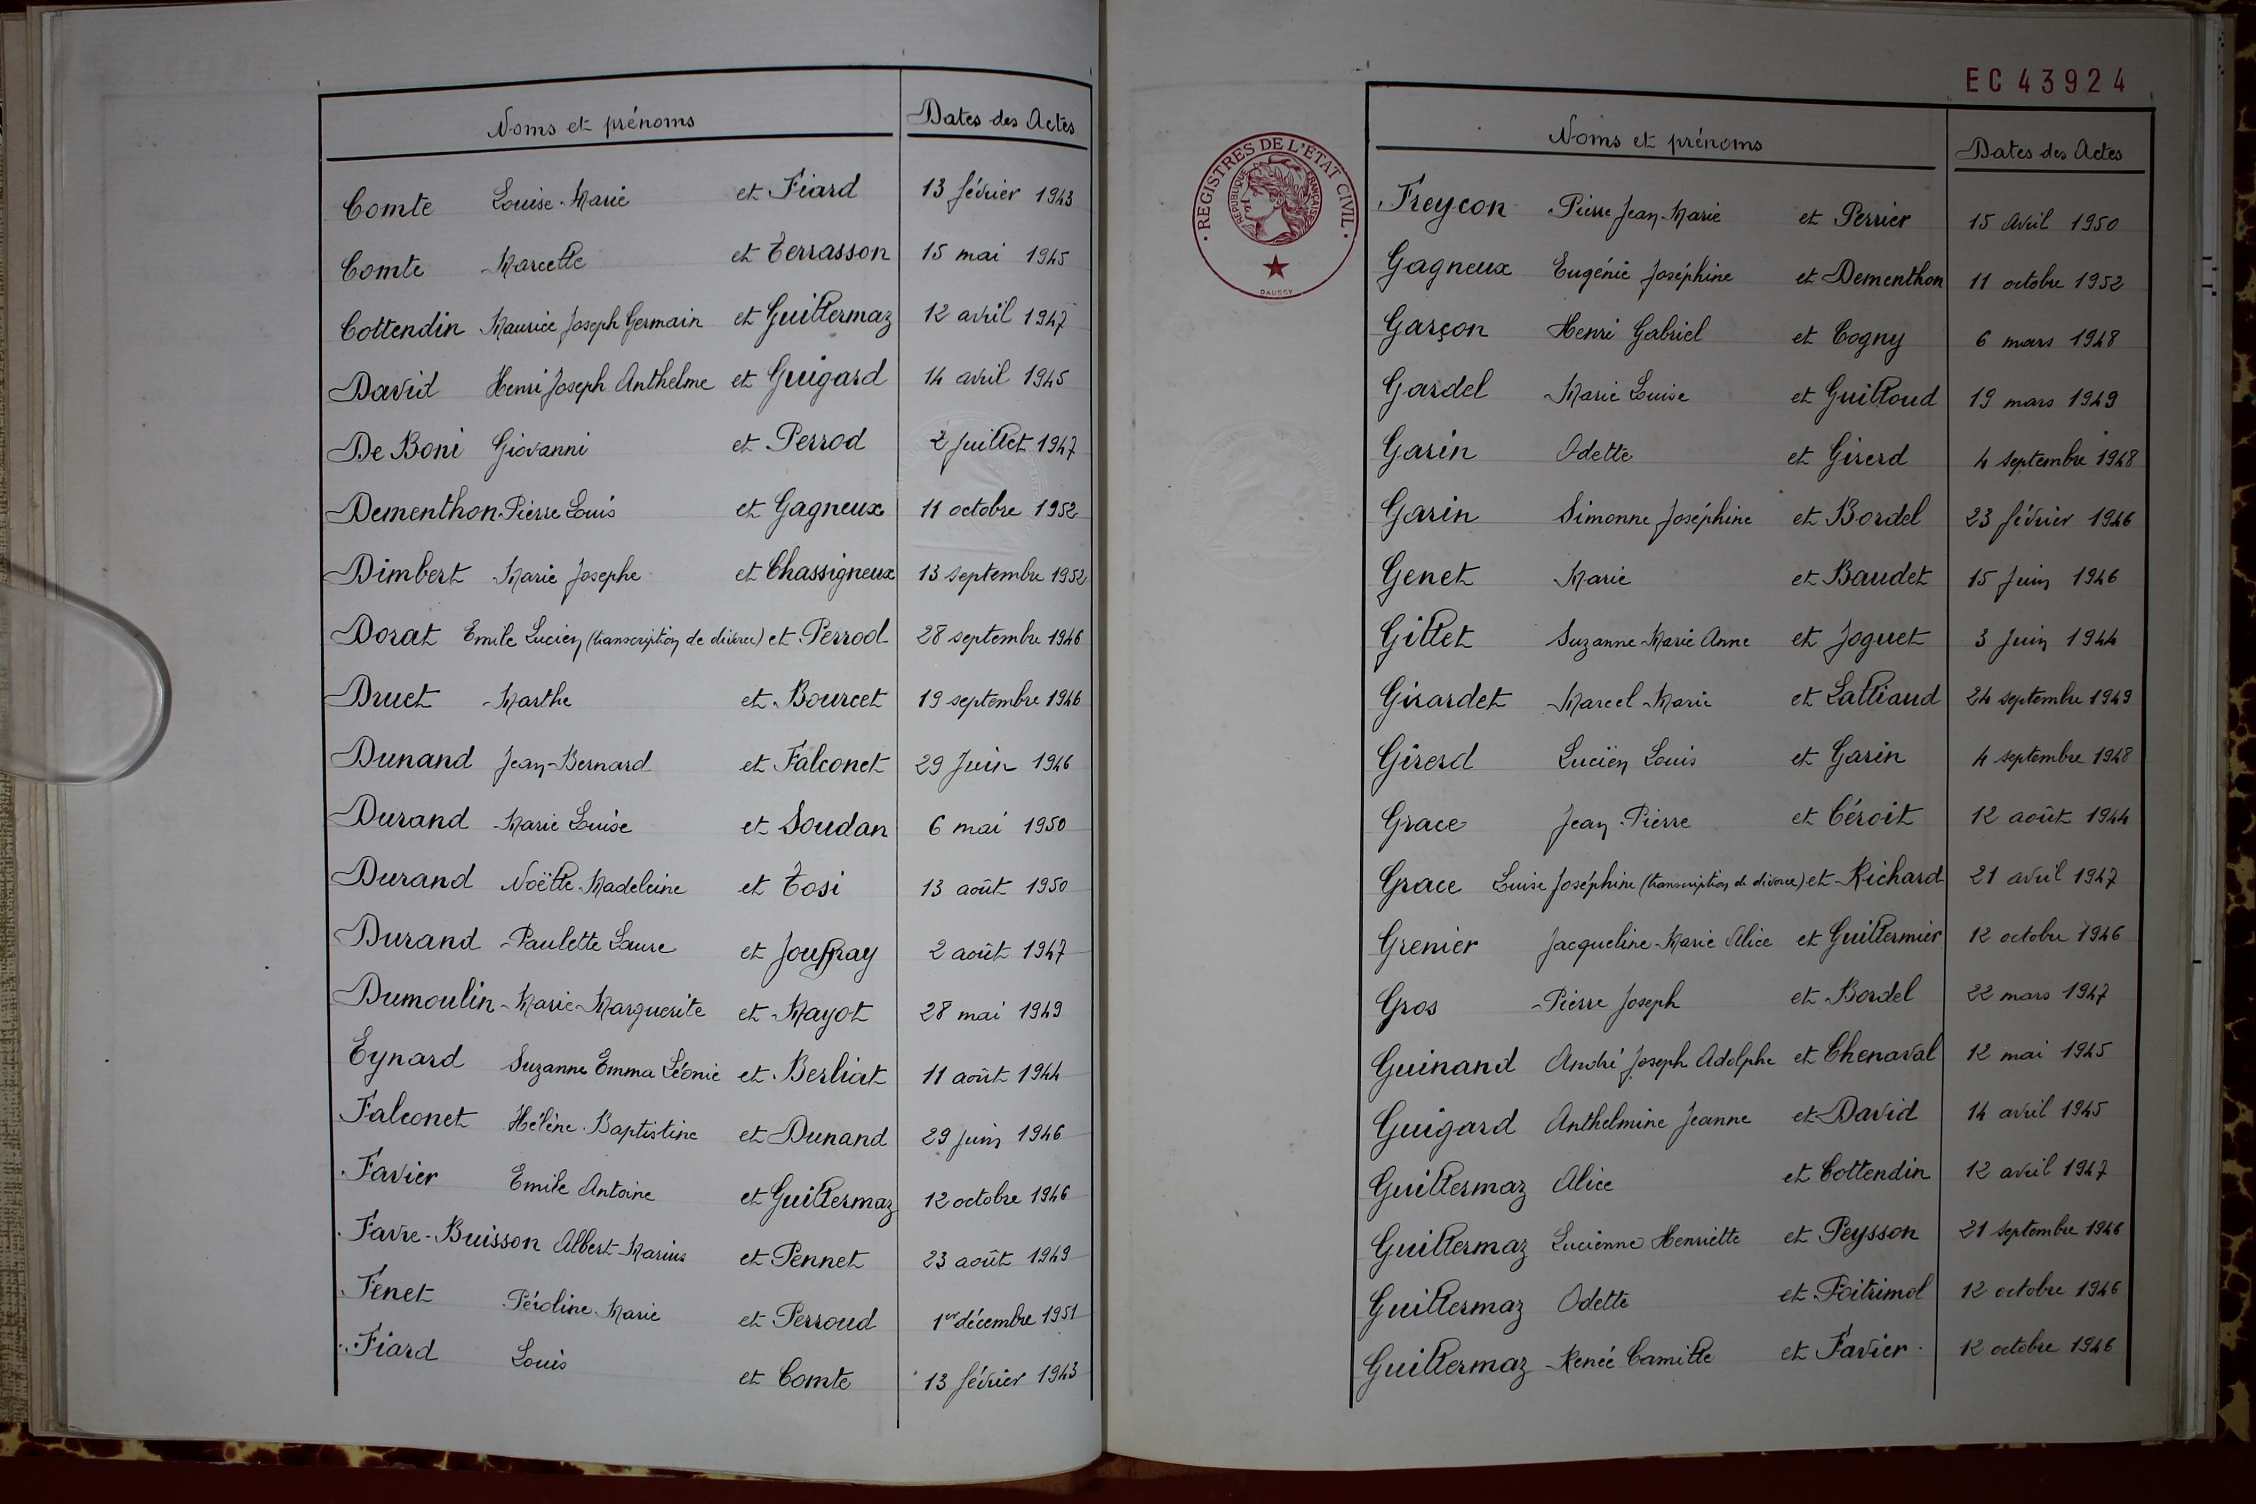 Noms et prénoms Dates des Actes
Comte Louise Marie et Fiard 13 février 1943
Comte Marcelle et Terrasson 15 mai 1945
Cottendin Maurice Joseph Germain et Guillermaz 12 avril 1947
David Henri Joseph Anthelme et Guigard 14 avril 1945
De Boni Giovanni et Perrod 2 Juillet 1947
Dementhon Pierre Louis et Gagneux 11 octobre 1952
Dimbert Marie Josephe et Chassigneux 13 septembre 1952
Dorat Emile Lucien (transcription de divorce) et Perrod 28 septembre 1946
Druet Marthe et Bourcet 19 septembre 1946
Dunand Jean-Bernard et Falconet 29 Juin 1946
Durand Marie Louise et Soudan 6 mai 1950
Durand Noëlle Madeleine et Tosi 13 août 1950
Durand Paulette Laure et Jouffray 2 août 1947
Dumoulin Marie-Marguerite et Mayot 28 mai 1949
Eynard Suzanne Emma Léonie et Berliat 11 août 1944
Falconet Hélène Baptistine et Dunand 29 Juin 1946
Favier Emile Antoine et Guillermaz 12 octobre 1946
Favre-Buisson Albert Marius et Pennet 23 août 1949
Fenet Péroline Marie et Perroud 1er décembre 1951
Fiard Louis et Comte 13 février 1943
EC 43924
REGISTRES DE L'ETAT CIVIL
REPUBLIQUE FRANÇAISE
DAUSSY
Noms et prénoms Dates des Actes
Freycon Pierre Jean-Marie et Perrier 15 Avril 1950
Gagneux Eugénie Joséphine et Dementhon 11 octobre 1952
Garçon Henri Gabriel et Cogny 6 mars 1948
Gardel Marie Louise et Guilloud 19 mars 1949
Garin Odette et Girerd 4 septembre 1948
Garin Simonne Joséphine et Bordel 23 février 1946
Genet Marie et Baudet 15 Juin 1946
Gillet Suzanne Marie Anne et Joguet 3 Juin 1944
Girardet Marcel Marie et Lalliaud 24 septembre 1949
Girerd Lucien Louis et Garin 4 septembre 1948
Grace Jean Pierre et Céroit 12 août 1944
Grace Louise Joséphine (transcription de divorce) et Richard 21 avril 1947
Grenier Jacqueline Marie Alice et Guillermier 12 octobre 1946
Gros Pierre Joseph et Bordel 22 mars 1947
Guinand André Joseph Adolphe et Chenaval 12 mai 1945
Guigard Anthelmine Jeanne et David 14 avril 1945
Guillermaz Alice et Cottendin 12 avril 1947
Guillermaz Lucienne Henriette et Peysson 21 septembre 1946
Guillermaz Odette et Poitrimol 12 octobre 1946
Guillermaz Renée Camille et Favier 12 octobre 1946